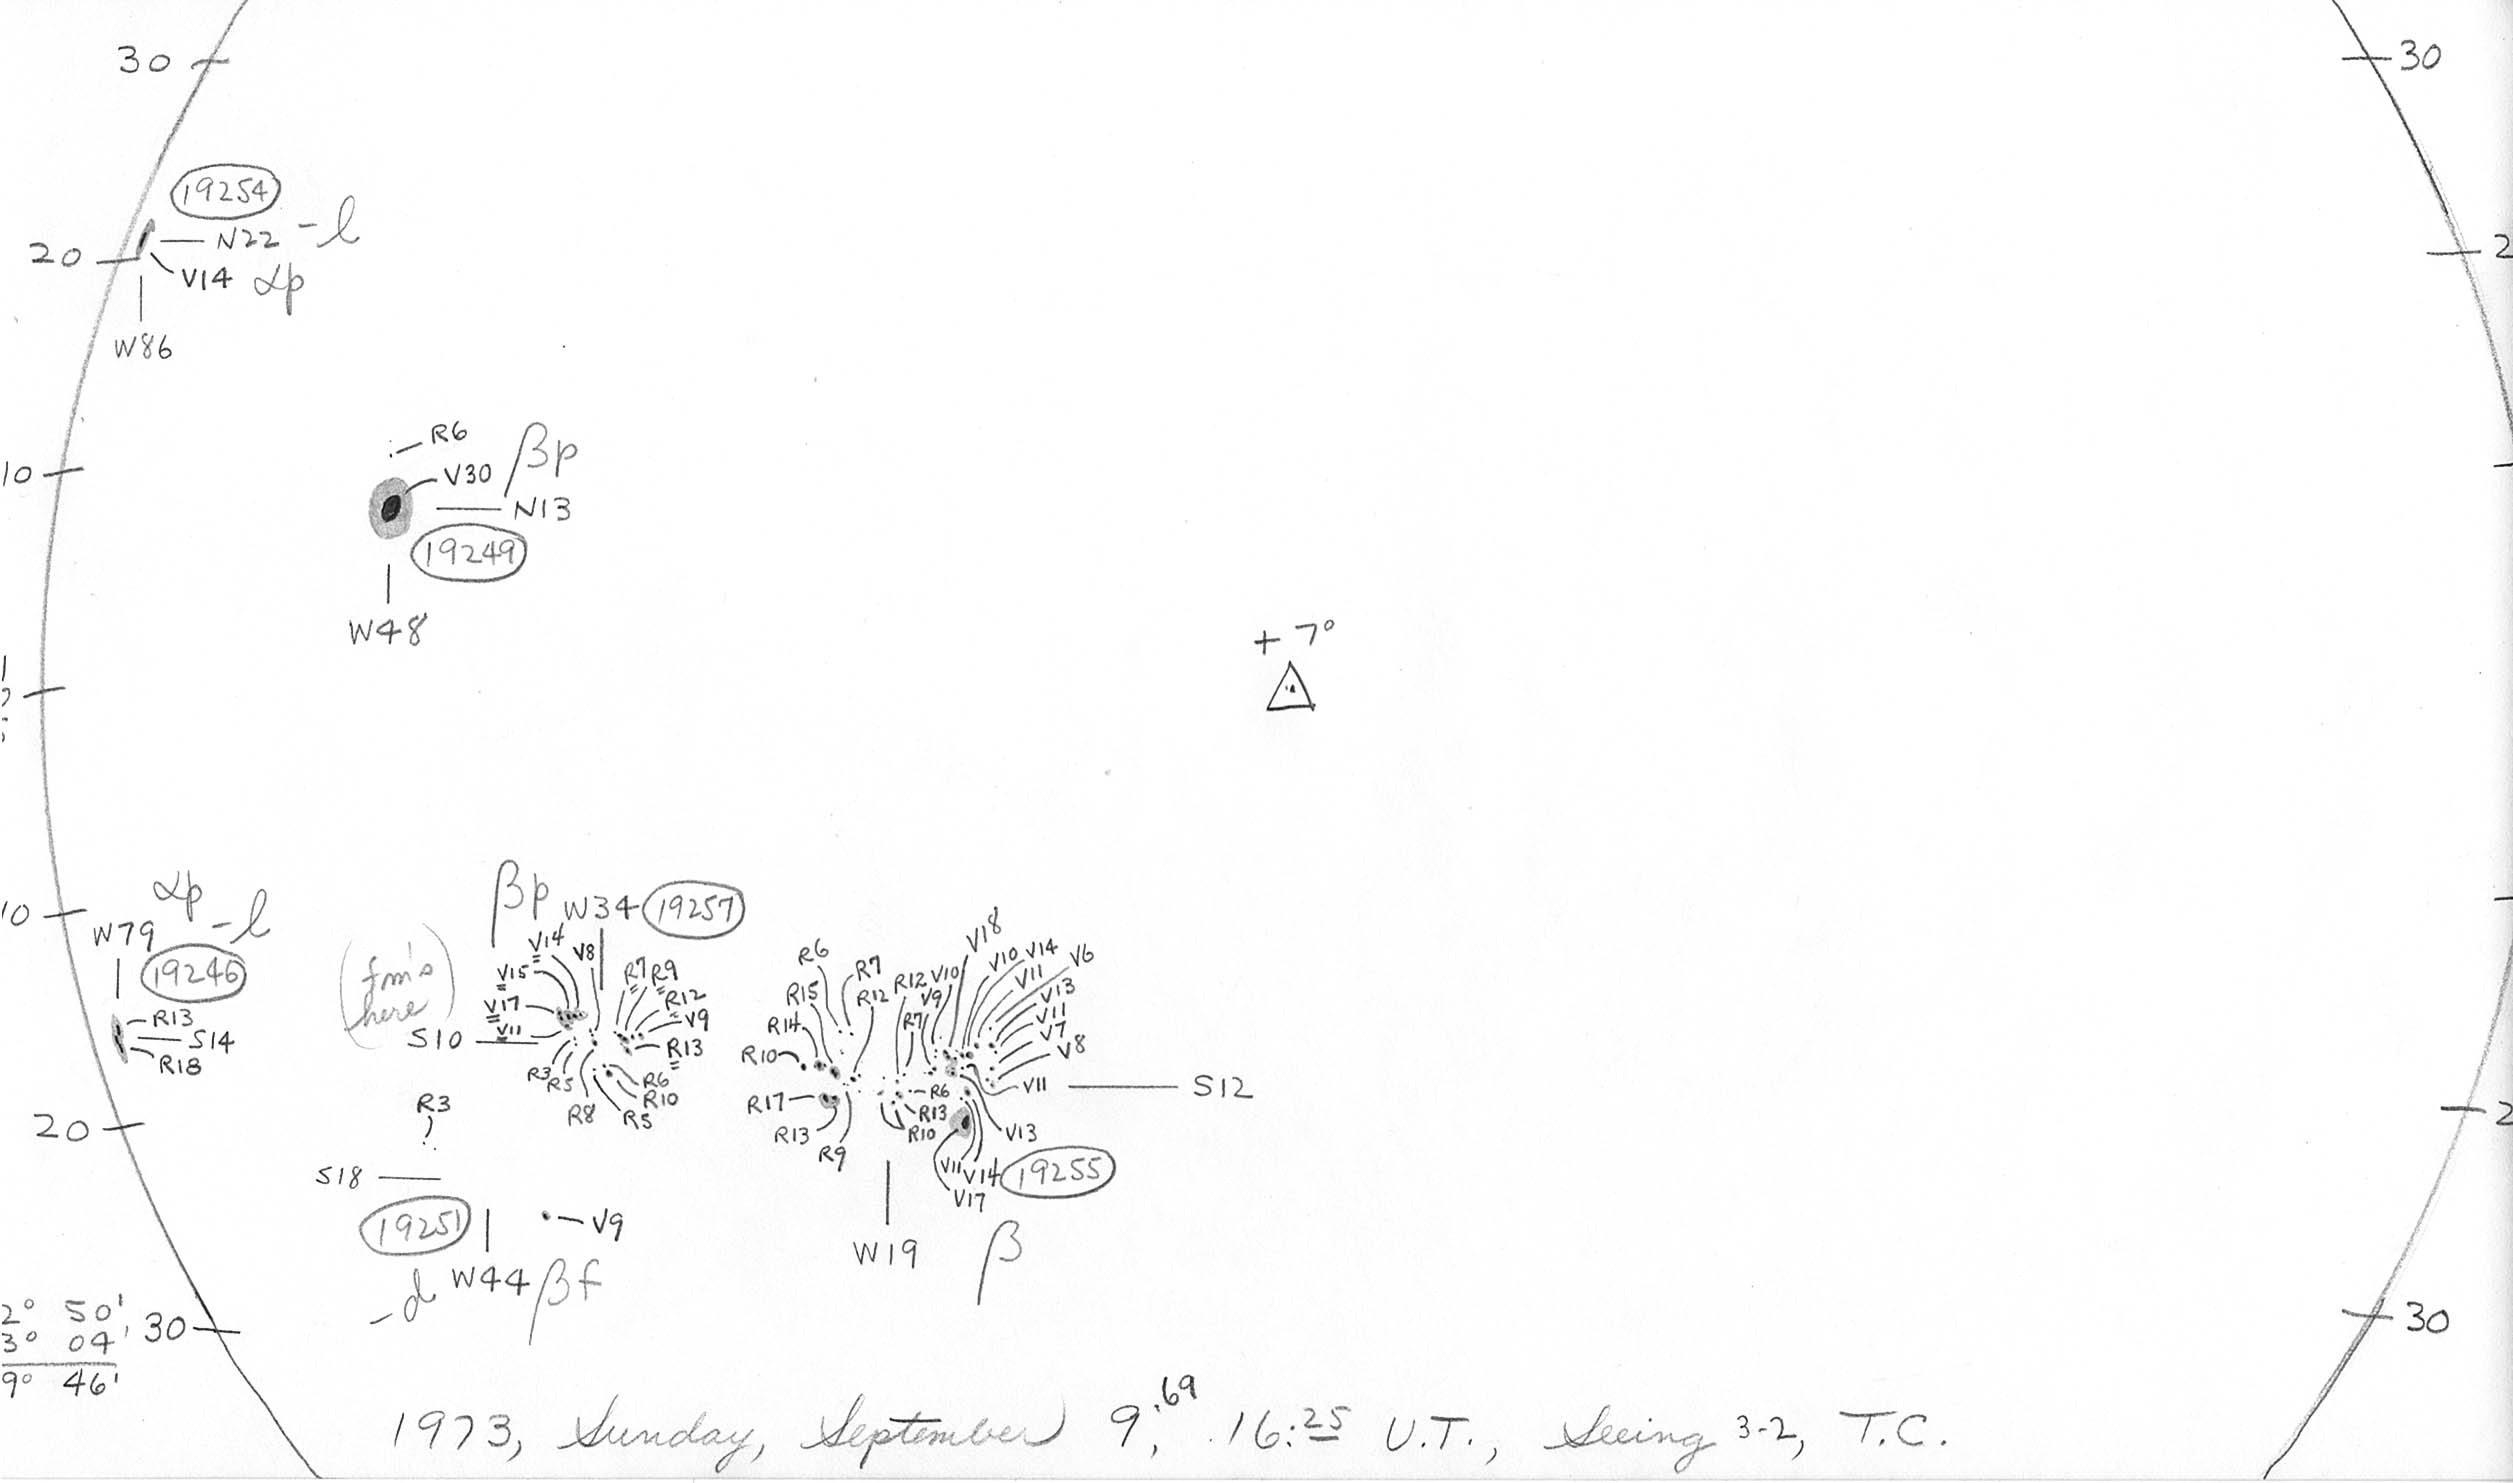 30
30
19254
N22 -l
20
2
V14 αp
W86
R6
βp
10
V30
N13
19249
W48
+ 7°
αp
βp W34 19257
10
W79 -l
19246
R13
S14
R18
(fm's here)
V14
V8
V15
R7 R9
V17
R12
V9
V11
S10
R13
R3
R5
R6
R10
R8
R5
R6
R7
R12
V10
V18
V10
V14
V6
R15
R12
V9
V11
V13
R14
R7
V11
V7
R10
V8
V11
S12
R17
R6
R13
R13
R10
V13
R9
V11
V14
19255
V17
W19
β
R3
20
2
S18
19251
V9
-d W44 βf
2° 50'
3° 04'
9° 46'
30
30
1973, Sunday, September 9,.69 16:25 U.T., Seeing 3-2, T.C.